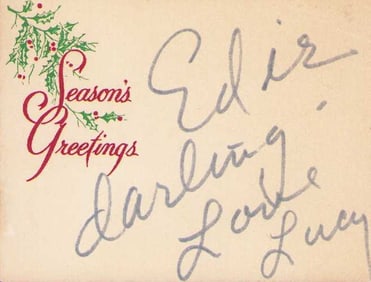 Season's
Greetings
Edie
darling,
Love
Lucy